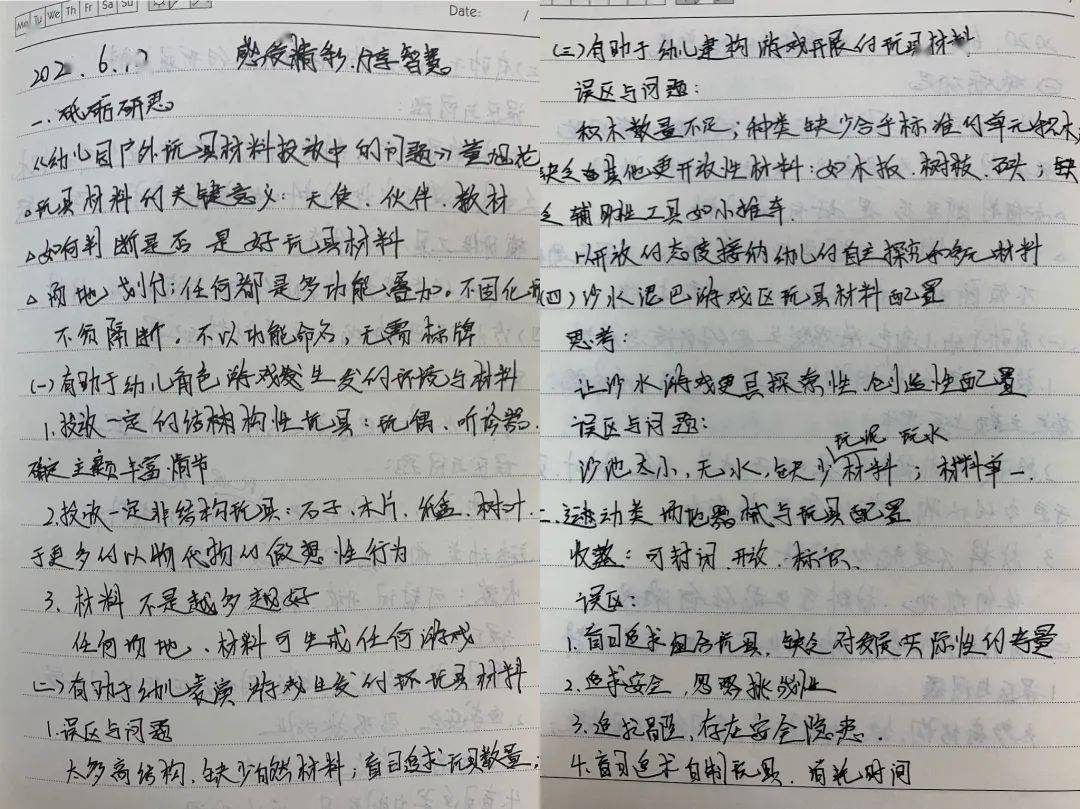 Mo Tu We Th Fr Sa Su
Date: /
202 . 6.1 感受精彩.分享智慧
一.砥砺研思
《幼儿园户外玩具材料投放中的问题》董旭花
。玩具材料的关键意义:天使、伙伴、教材
△如何判断是否是好玩具材料
△场地划分:任何都是多功能叠加。不固化
不须隔断。不以功能命名,无需标牌
(一)有助于幼儿角色游戏发生发的环境与材料
1.投放一定的结构性玩具:玩偶、听诊器.
确定主题丰富情节
2.投放一定非结构玩具:石子、木片、纸盒、树叶.
于更多的以物代物的假想性行为
3、材料不是越多越好
任何场地、材料可生成任何游戏
(二)有助于幼儿表演游戏生发的环玩具材料
1.误区与问题
太多高结构,缺少自然材料;盲目追求玩具数量;
(三)有助于幼儿建构游戏开展的玩具材料
误区与问题:
积木数量不足;种类缺少合乎标准的单元积木;
缺乏其他更开放性材料:如木板、树枝、石头;缺
乏辅助性工具如小推车.
以开放的态度接纳幼儿的自主探究和多元材料
(四)沙水泥巴游戏区玩具材料配置
思考:
让沙水游戏更具探索性、创造性配置
误区与问题:
玩泥 玩水
沙池太小,无水,缺少材料;材料单一.
二、运动类场地器械与玩具配置
收整:可封闭、开放、标识、
误区:
1.盲目追求组合玩具、缺乏对发展实际性的考量
2.追求安全,忽略挑战性
3.追求冒险,存在安全隐患.
4.盲目追求自制玩具、消耗时间